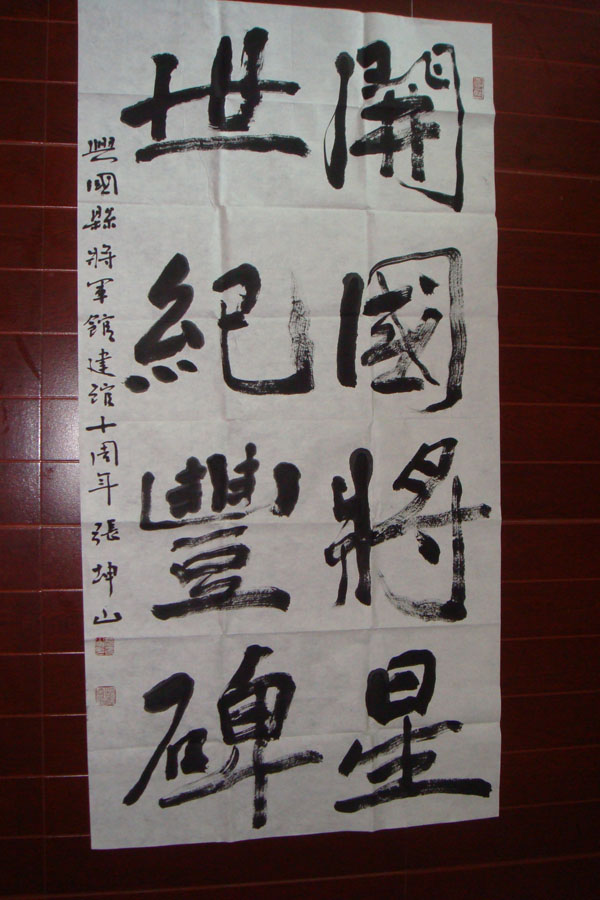 開國將星
世紀豐碑
興國縣將軍館建館十周年 張坤山